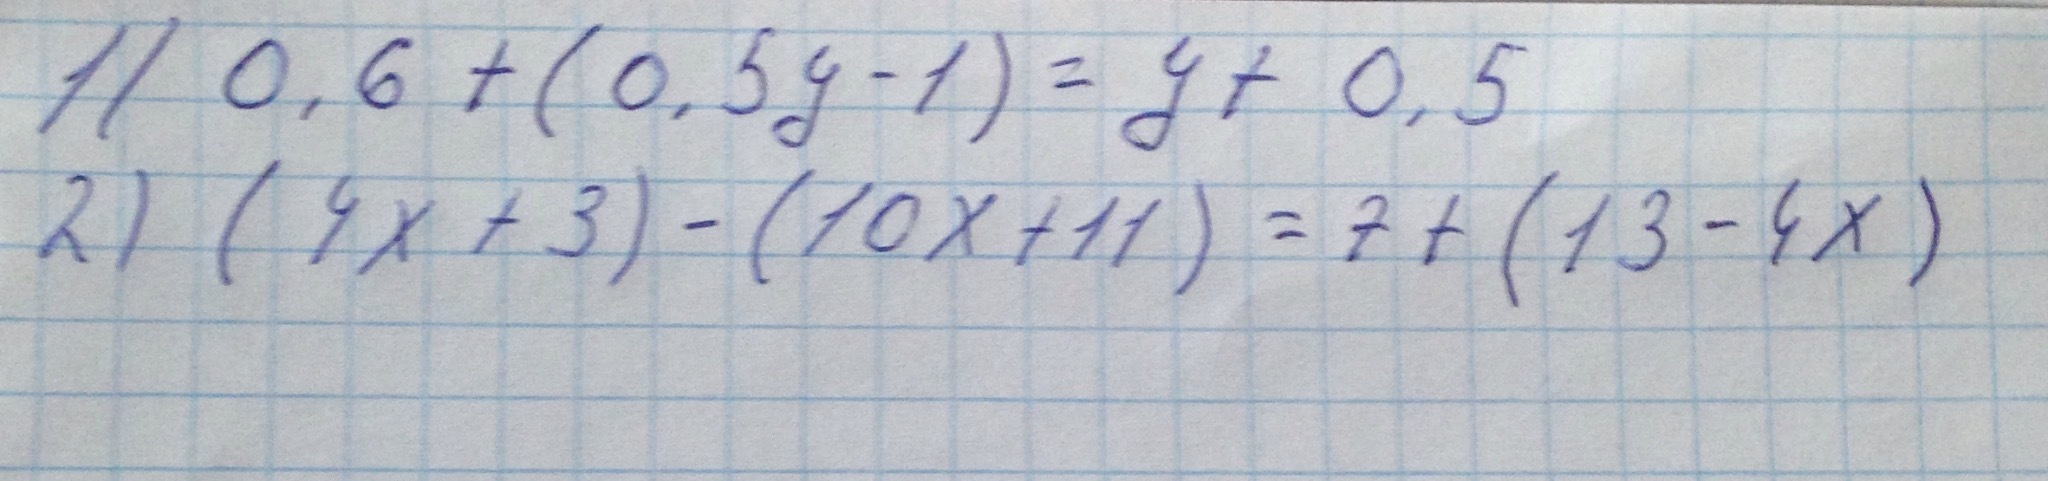 1) 0,6 + (0,5y - 1) = y + 0,5
2) (4x + 3) - (10x + 11) = 7 + (13 - 4x)